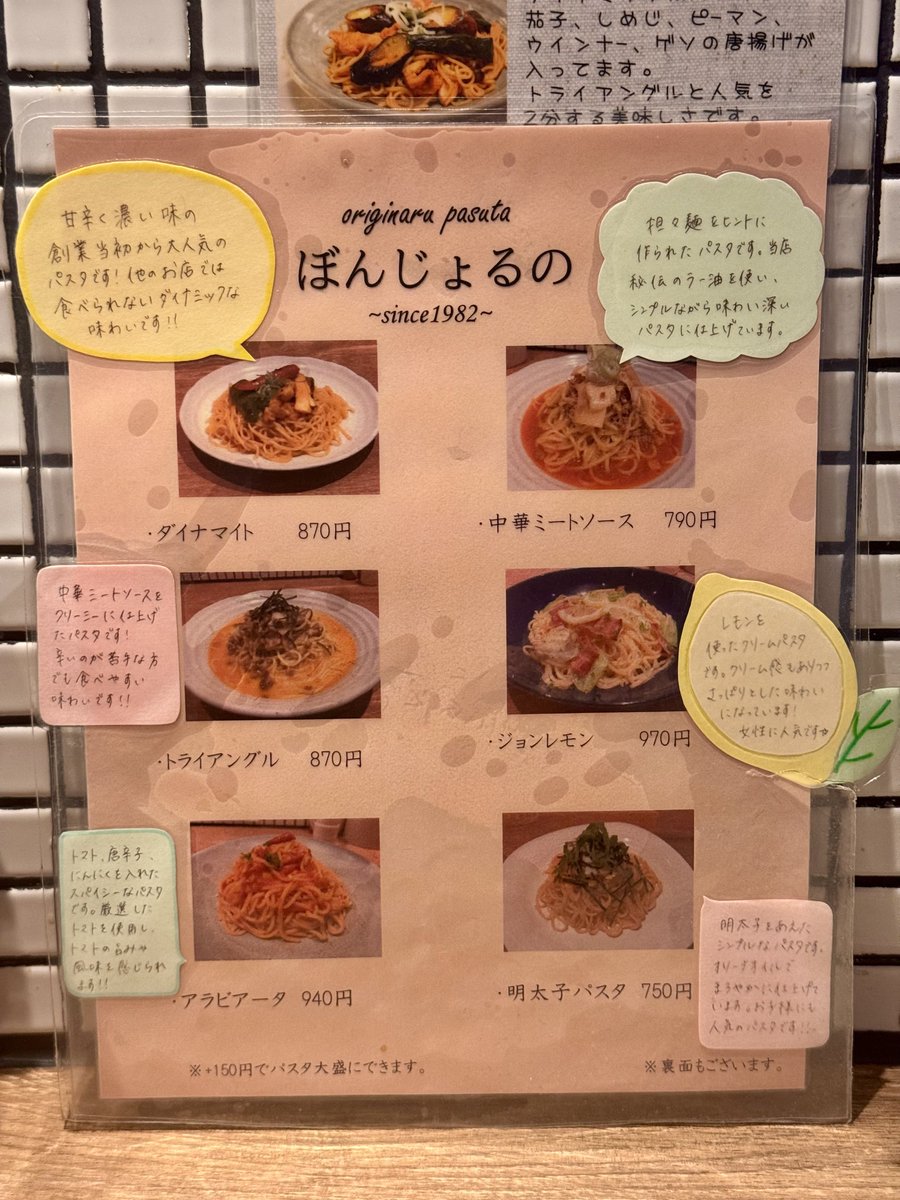 茄子、しめじ、ピーマン、
ウインナー、ゲソの唐揚げが
入ってます。
トライアングルと人気を
2分する美味しさです。
甘辛く濃い味の
創業当初から大人気の
パスタです！他のお店では
食べられないダイナミックな
味わいです!!
originaru pasuta
ぼんじょるの
~since1982~
担々麺をヒントに
作られたパスタです。当店
秘伝のラー油を使い、
シンプルながら味わい深い
パスタに仕上げています。
・ダイナマイト 870円
・中華ミートソース 790円
中華ミートソースを
クリーミーに仕上げ
たパスタです！
辛いのが苦手な方
でも食べやすい
味わいです!!
・トライアングル 870円
・ジョンレモン 970円
レモンを
使ったクリームパスタ
です。クリーム感もありつつ
さっぱりとした味わい
になっています！
女性に人気です☆
トマト、唐辛子、
にんにくを入れた
スパイシーなパスタ
です。厳選した
トマトを使用し、
トマトの旨みや
風味を感じられ
ます!!
・アラビアータ 940円
・明太子パスタ 750円
明太子をあえた
シンプルなパスタです。
オリーブオイルで
まろやかに仕上げて
います。お子様にも
人気のパスタです!!
※+150円でパスタ大盛にできます。
※裏面もございます。